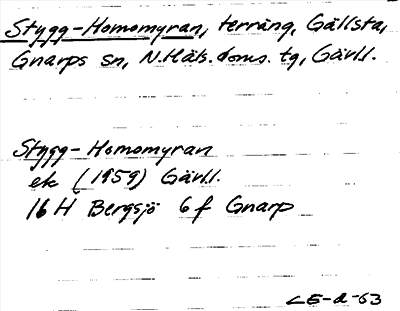 Stygg-Homomyran, terräng, Gällsta,
Gnarps sn, N.Häls. doms. tg, Gävll.
Stygg-Homomyran
ek (1959) Gävll.
16 H Bergsjö 6 f Gnarp
CE-d-63